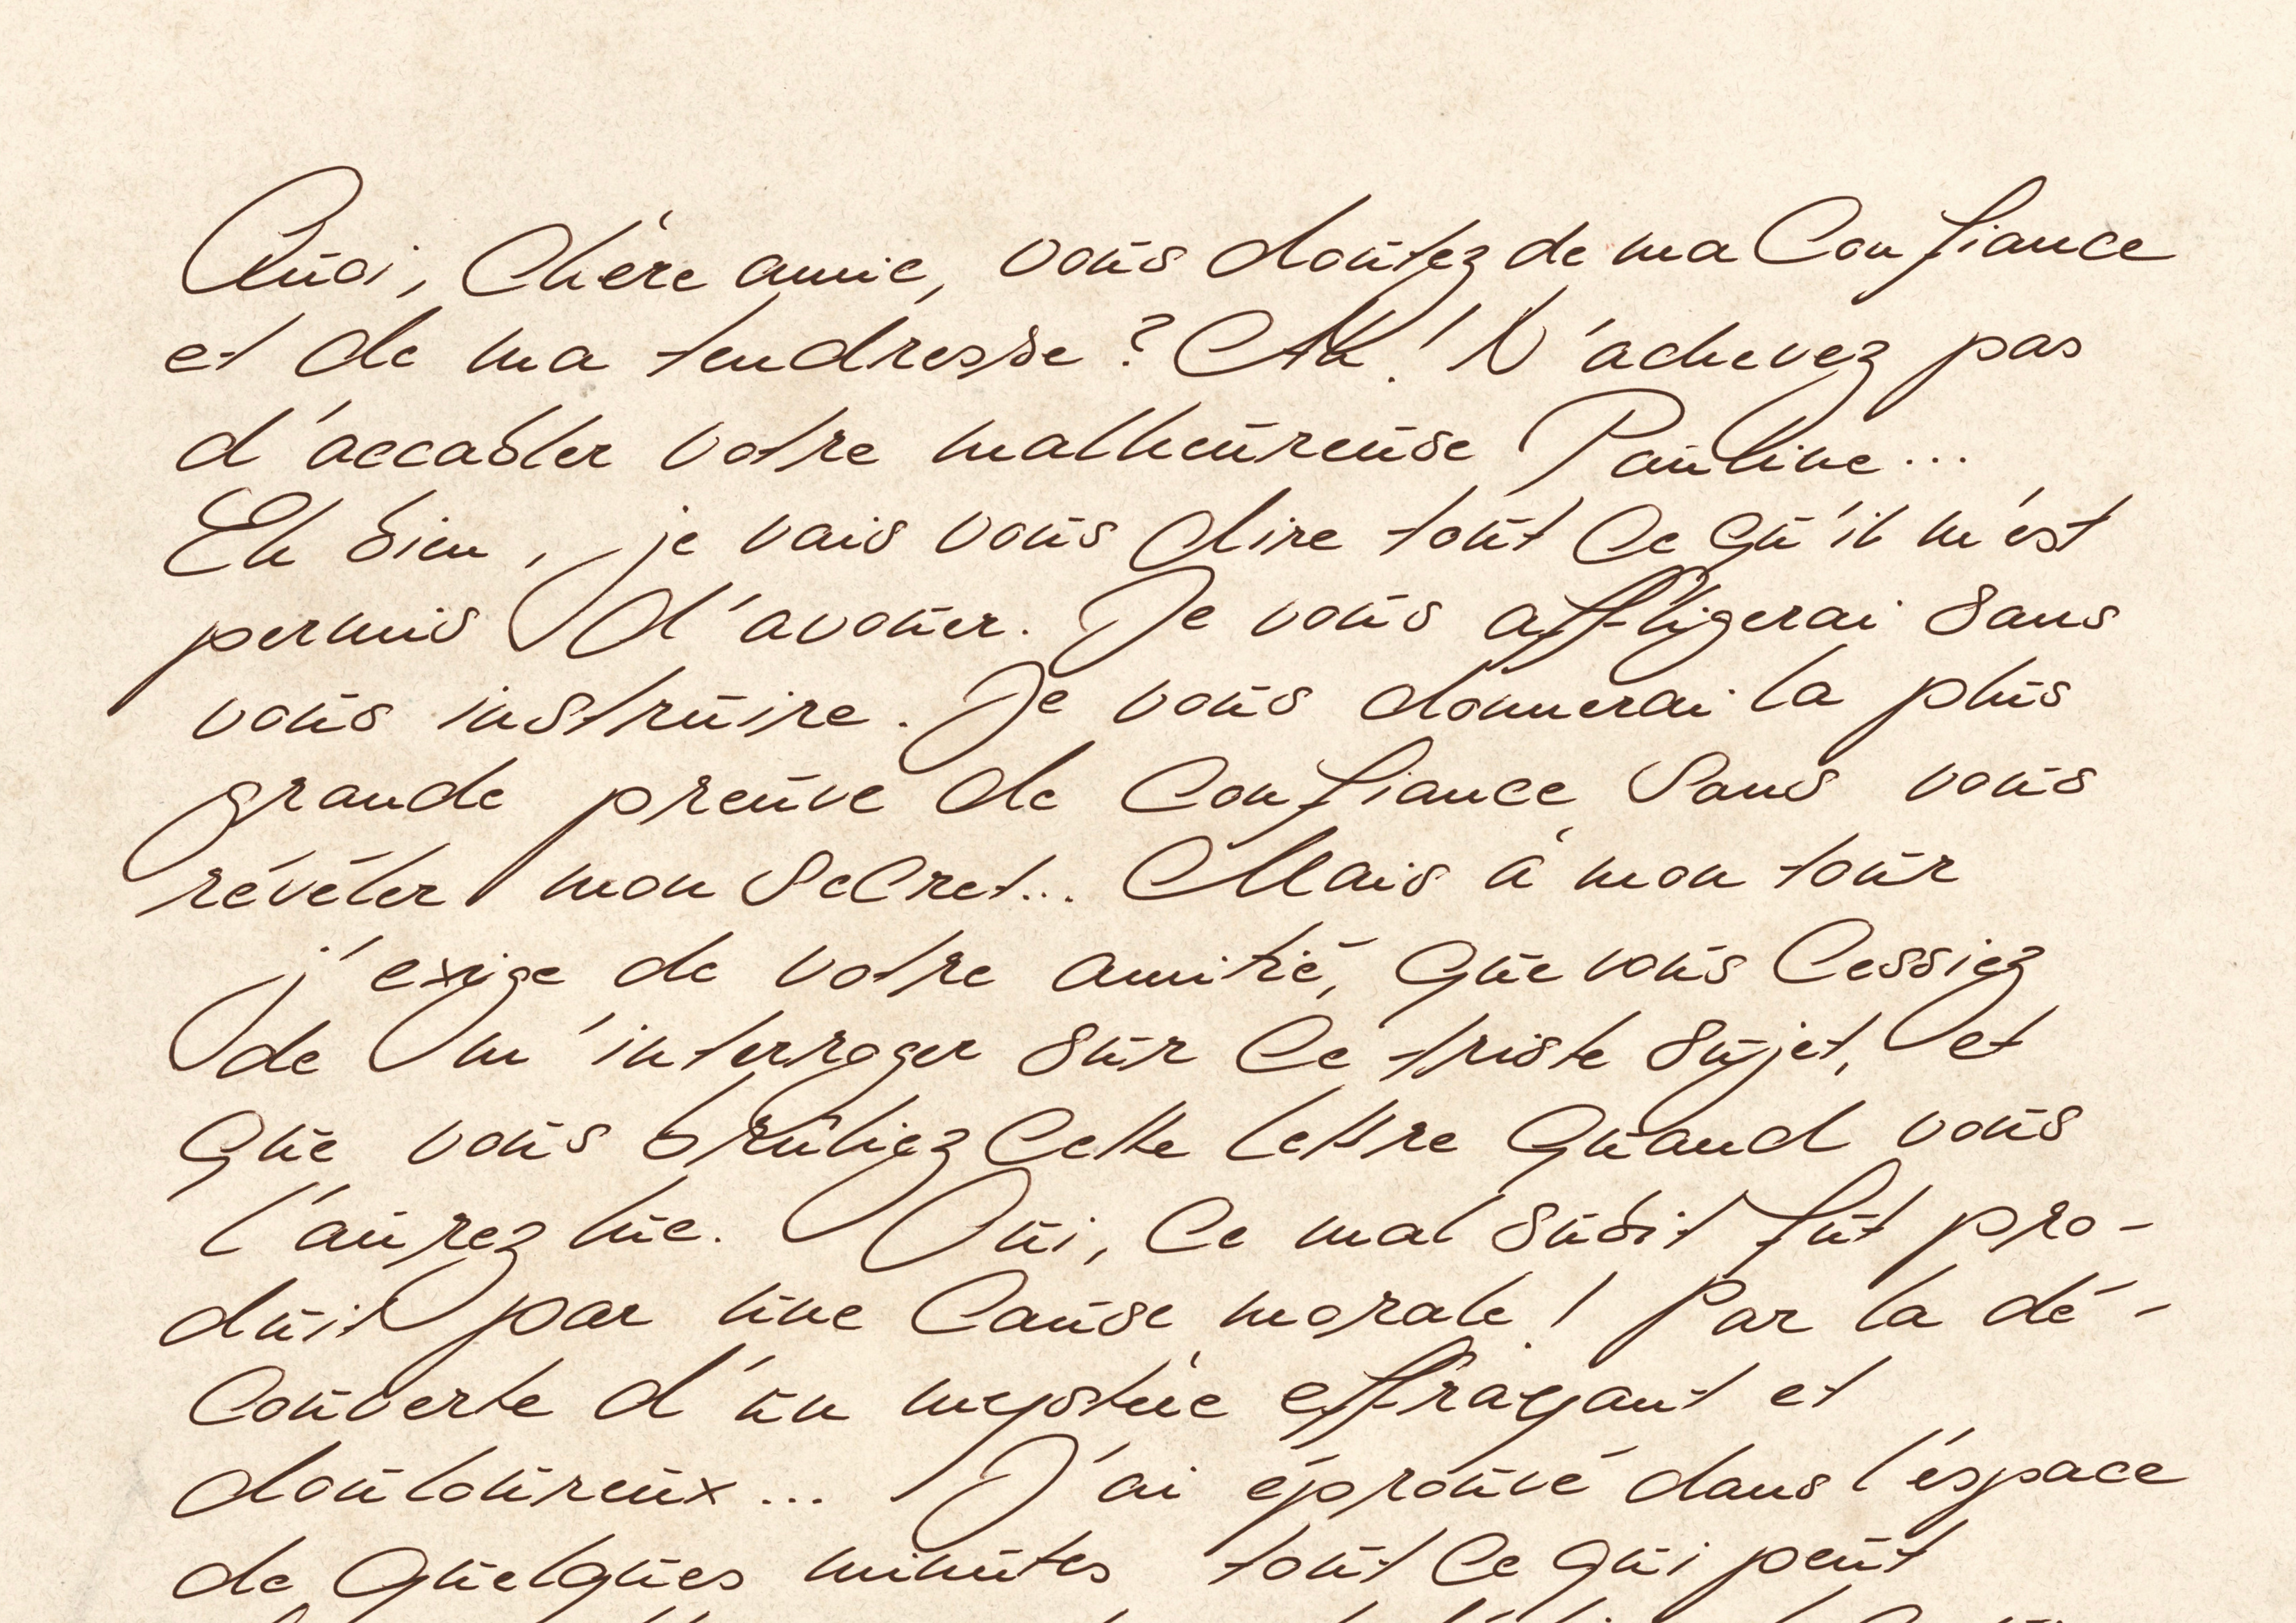 Quoi, chère amie, vous doutez de ma confiance
et de ma tendresse ? Ah ! N'achevez pas
d'accabler votre malheureuse Pauline...
Eh bien, je vais vous dire tout ce qu'il m'est
permis d'avouer. Je vous affligerai sans
vous instruire. Je vous donnerai la plus
grande preuve de confiance sans vous
révéler mon secret... Mais à mon tour
j'exige de votre amitié, que vous cessiez
de m'interroger sur ce triste sujet, et
que vous brûliez cette lettre quand vous
l'aurez lue. Oui, ce mal subit fut pro-
duit par une cause morale ! Par la dé-
couverte d'un mystère effrayant et
douloureux... J'ai éprouvé dans l'espace
de quelques minutes tout ce qui peut